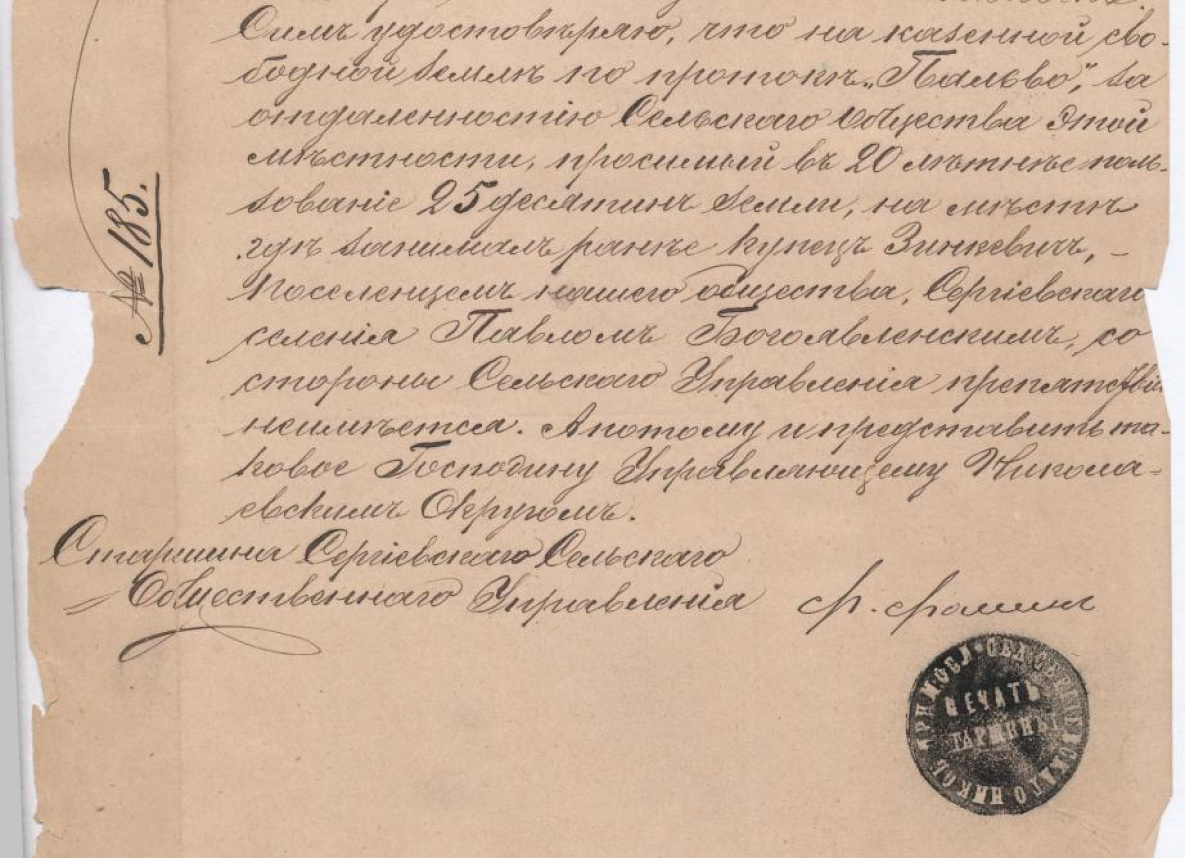 Симъ удостовѣряю, что на казенной сво-
бодной землѣ по протокѣ „Пальво", за
отдаленностію Сельскаго Общества этой
мѣстности, просимый въ 20 лѣтнѣе поль-
зованіе 25 десятинъ земли, на мѣстѣ
гдѣ занималъ ранѣе купецъ Зинкевичъ, –
Поселенцемъ нашего общества, Сергіевскаго
селенія Павломъ Богоявленскимъ, со
стороны Сельскаго Управленія препятствій
неимѣется. Апотому и представить та-
ковое Господину Управляющему Никола-
евскимъ Округомъ.
Старшина Сергіевскаго Сельскаго
Общественнаго Управленія Ф. Фомин
№ 185.
ПЕЧАТЬ
СТАРШИНЫ